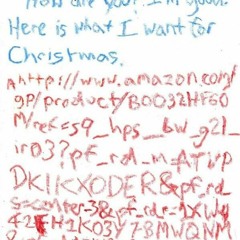 How are you? I'm good.
Here is what I want for
Christmas.
http://www.amazon.com/
gp/product/B0032HF60
M/ref=s9_hps_bw_g21_
ir03?pf_rd_m=ATVP
DKIKX0DER&pf_rd_
s=center-3&pf_rd_r=1XWQ
42FH1K03Y78MWQNM